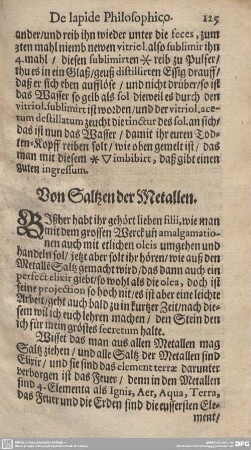 De lapide Philosophico. 125
ander/und reib ihn wieder unter die feces, zum
3ten mahl niemb newen vitriol. also sublimir ihn
4. mahl / diesen sublimirten reib zu Pulfer/
thu es in ein Glaß/geuß distillirten Essig drauff/
daß er sich eben aufflöse / und nicht drüber/so ist
das Wasser so gelb als sol dieweil es durch den
vitriol. sublimirt ist worden/und der vitriol. ace-
tum destillatum zeucht die tinctur des sol. an sich/
das ist nun das Wasser / damit ihr euren Tod-
ten-Kopff reiben solt / wie oben gemelt ist / das
man mit diesem imbibirt / daß gibt einen
guten ingressum.
Von Saltzen der Metallen.
BIßher habt ihr gehört lieben filii, wie man
mit dem grossen Werck uñ amalgamatio-
nen auch mit etlichen oleis umgehen und
handeln sol / jetzt aber solt ihr hören/ wie auß den
Metallē Saltz gemacht wird/das dann auch ein
perfect elixir giebt/so wohl als die olea, doch ist
seine projection so hoch nit/es ist aber eine leichte
Arbeit/geht auch bald zu in kurtzer Zeit/nach die-
sem wil ich euch lehren machen / den Stein den
ich für mein gröstes secretum halte.
Wisset das man aus allen Metallen mag
Saltz ziehen / und alle Saltz der Metallen sind
Elixir / und sie sind das element terræ darunter
verborgen ist das Feuer / denn in den Metallen
sind 4. Elementa als Ignis, Aer, Aqua, Terra,
das Feuer und die Erden sind die eussersten Ele-
ment/